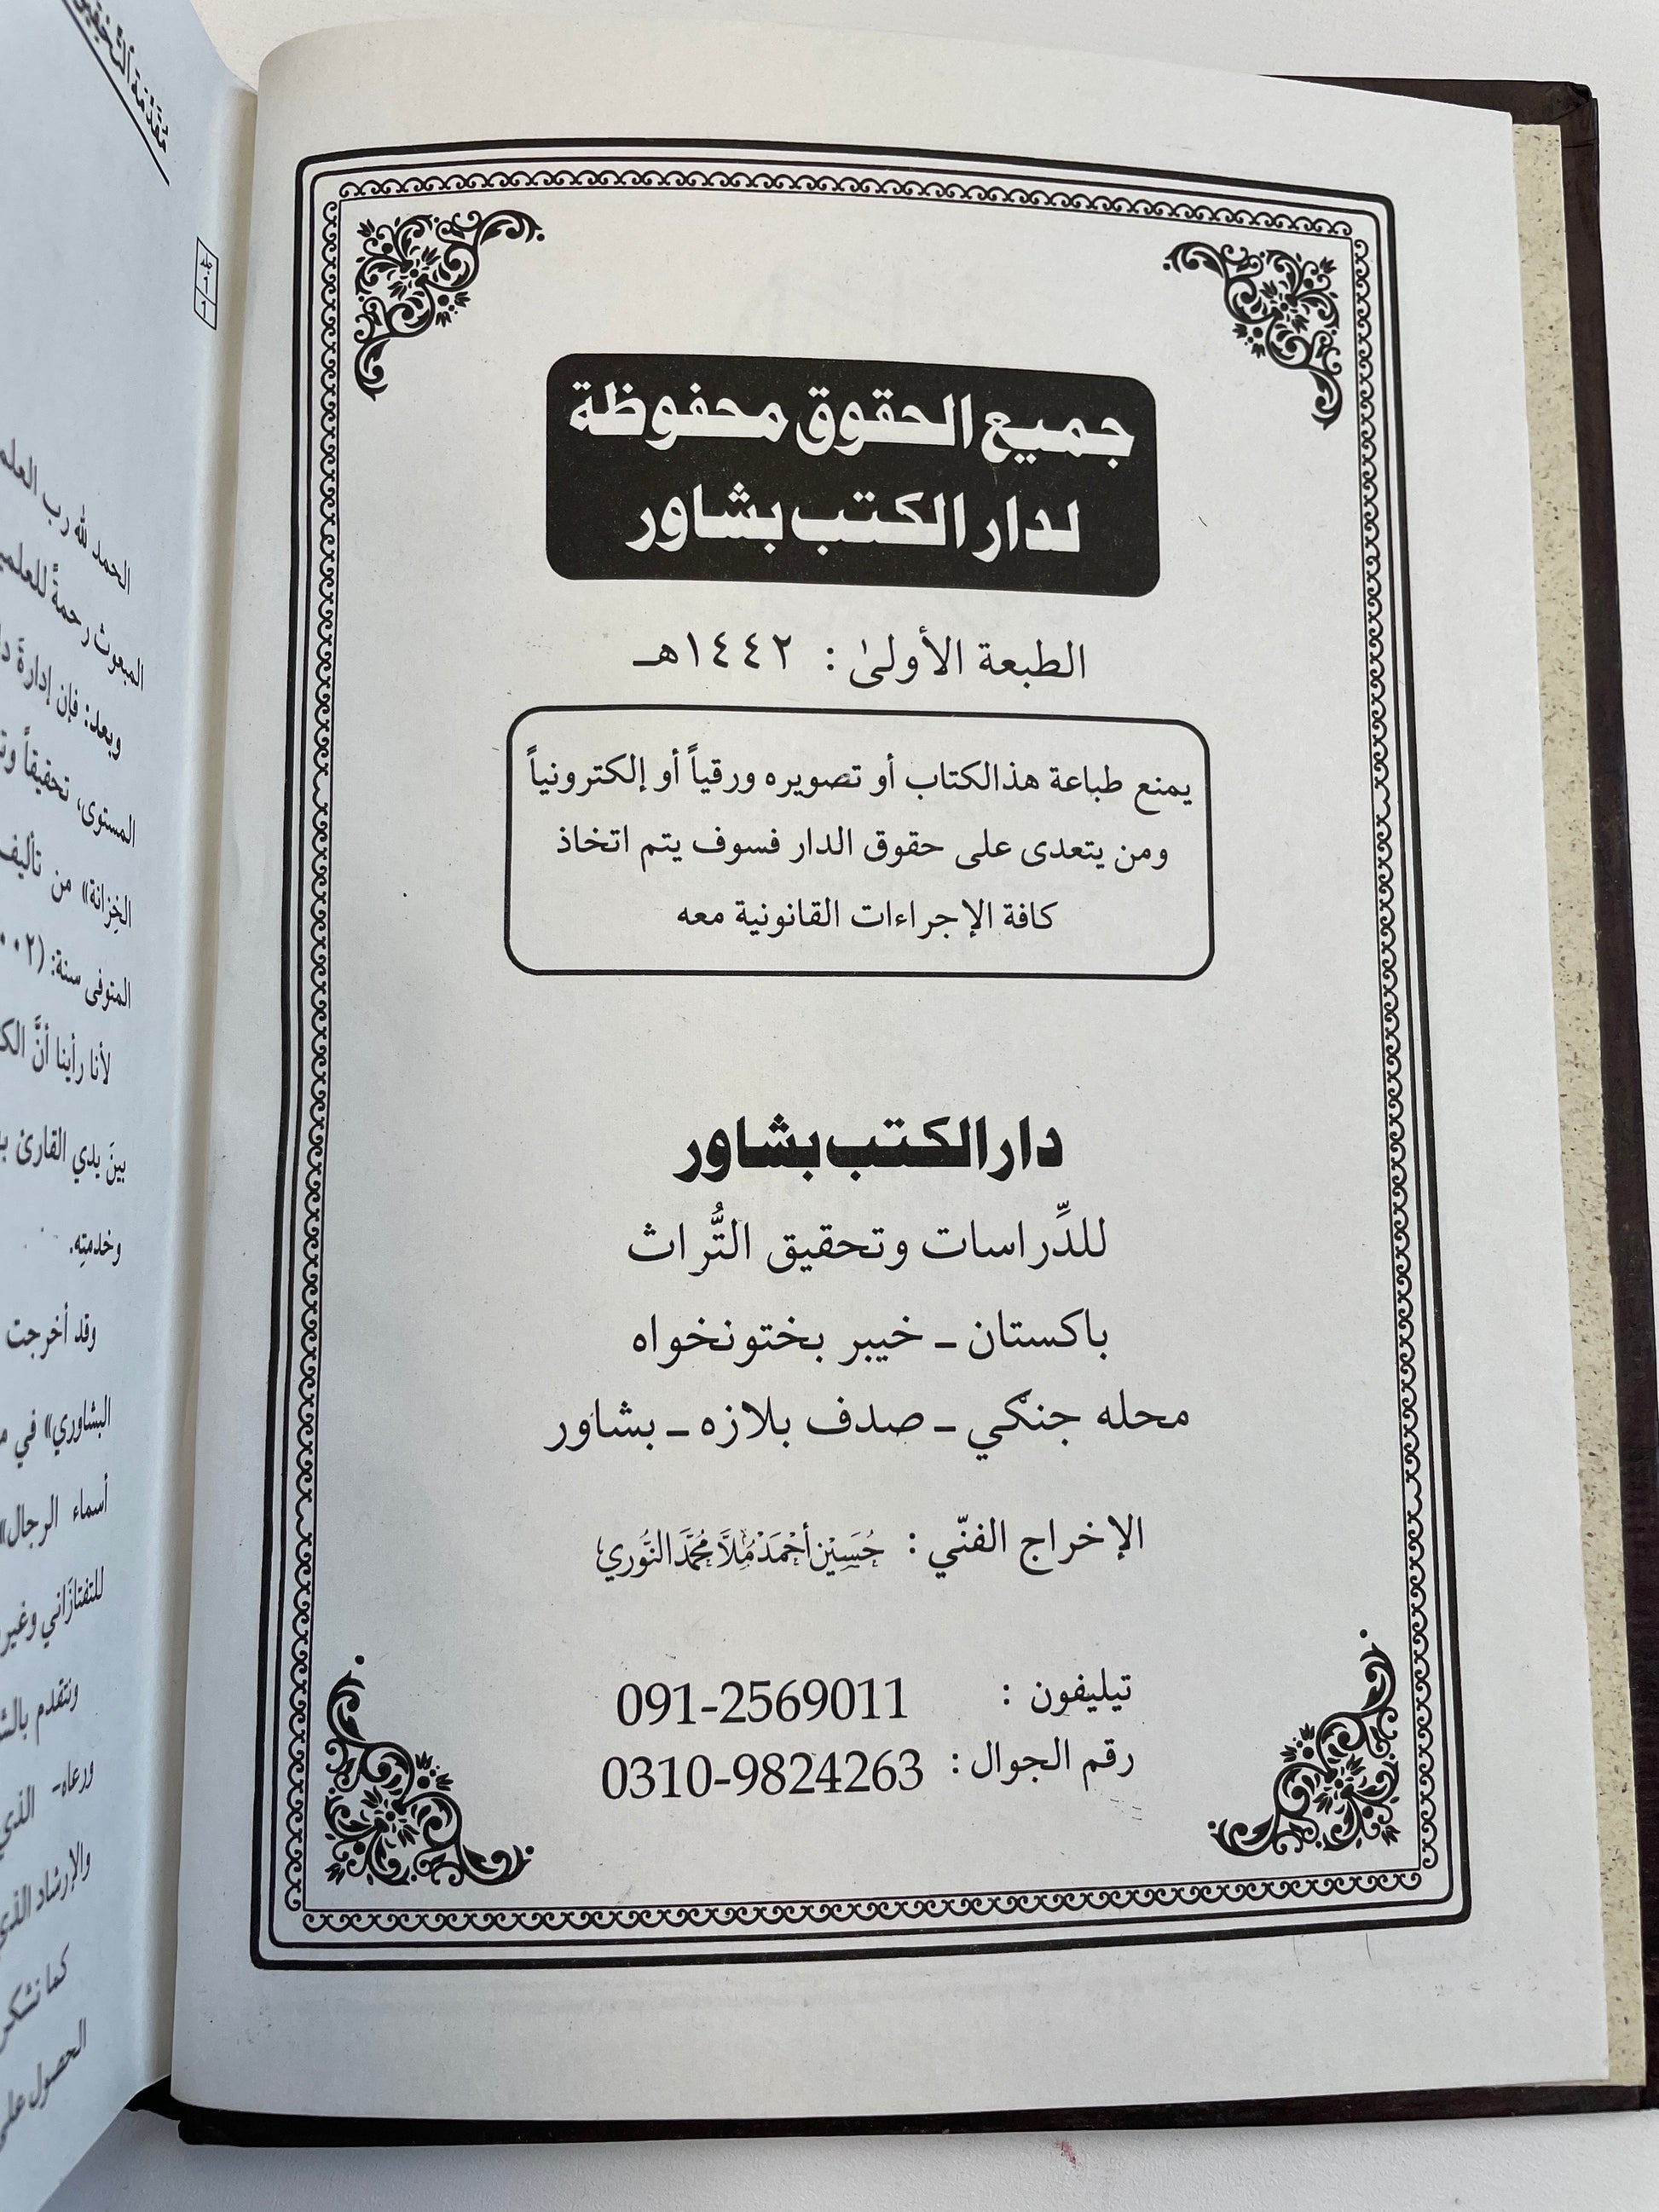 جميع الحقوق محفوظة
لدار الكتب بشاور
الطبعة الأولىٰ : ١٤٤٢هـ
يمنع طباعة هذالكتاب أو تصويره ورقياً أو إلكترونياً
ومن يتعدى على حقوق الدار فسوف يتم اتخاذ
كافة الإجراءات القانونية معه
دار الكتب بشاور
للدِّراسات وتحقيق التُّراث
باكستان ـ خيبر بختونخواه
محله جنگي ـ صدف بلازه ـ بشاور
الإخراج الفنّي : حُسَيْن أَحْمَدْ مُلَّا مُحَمَّد النُّوري
تيليفون : 091-2569011
رقم الجوال : 0310-9824263
مُقَدِّمَة التَّحْقِيق
الحمد لله رب
المبعوث رحمةً
وبعد: فإن إدارةَ
المستوى، تحقيقاً
الخِزانة» من تأليف
المتوفى سنة:
لأنا رأينا أنَّ
بينَ يدي القارئ
وخدمتِه.
وقد أخرجت
البشاوري» في
أسماء الرجال»
للتفتازَاني وغير
ونتقدم
ورعاه- الذي
والإرشاد
كما نشكر
الحصول